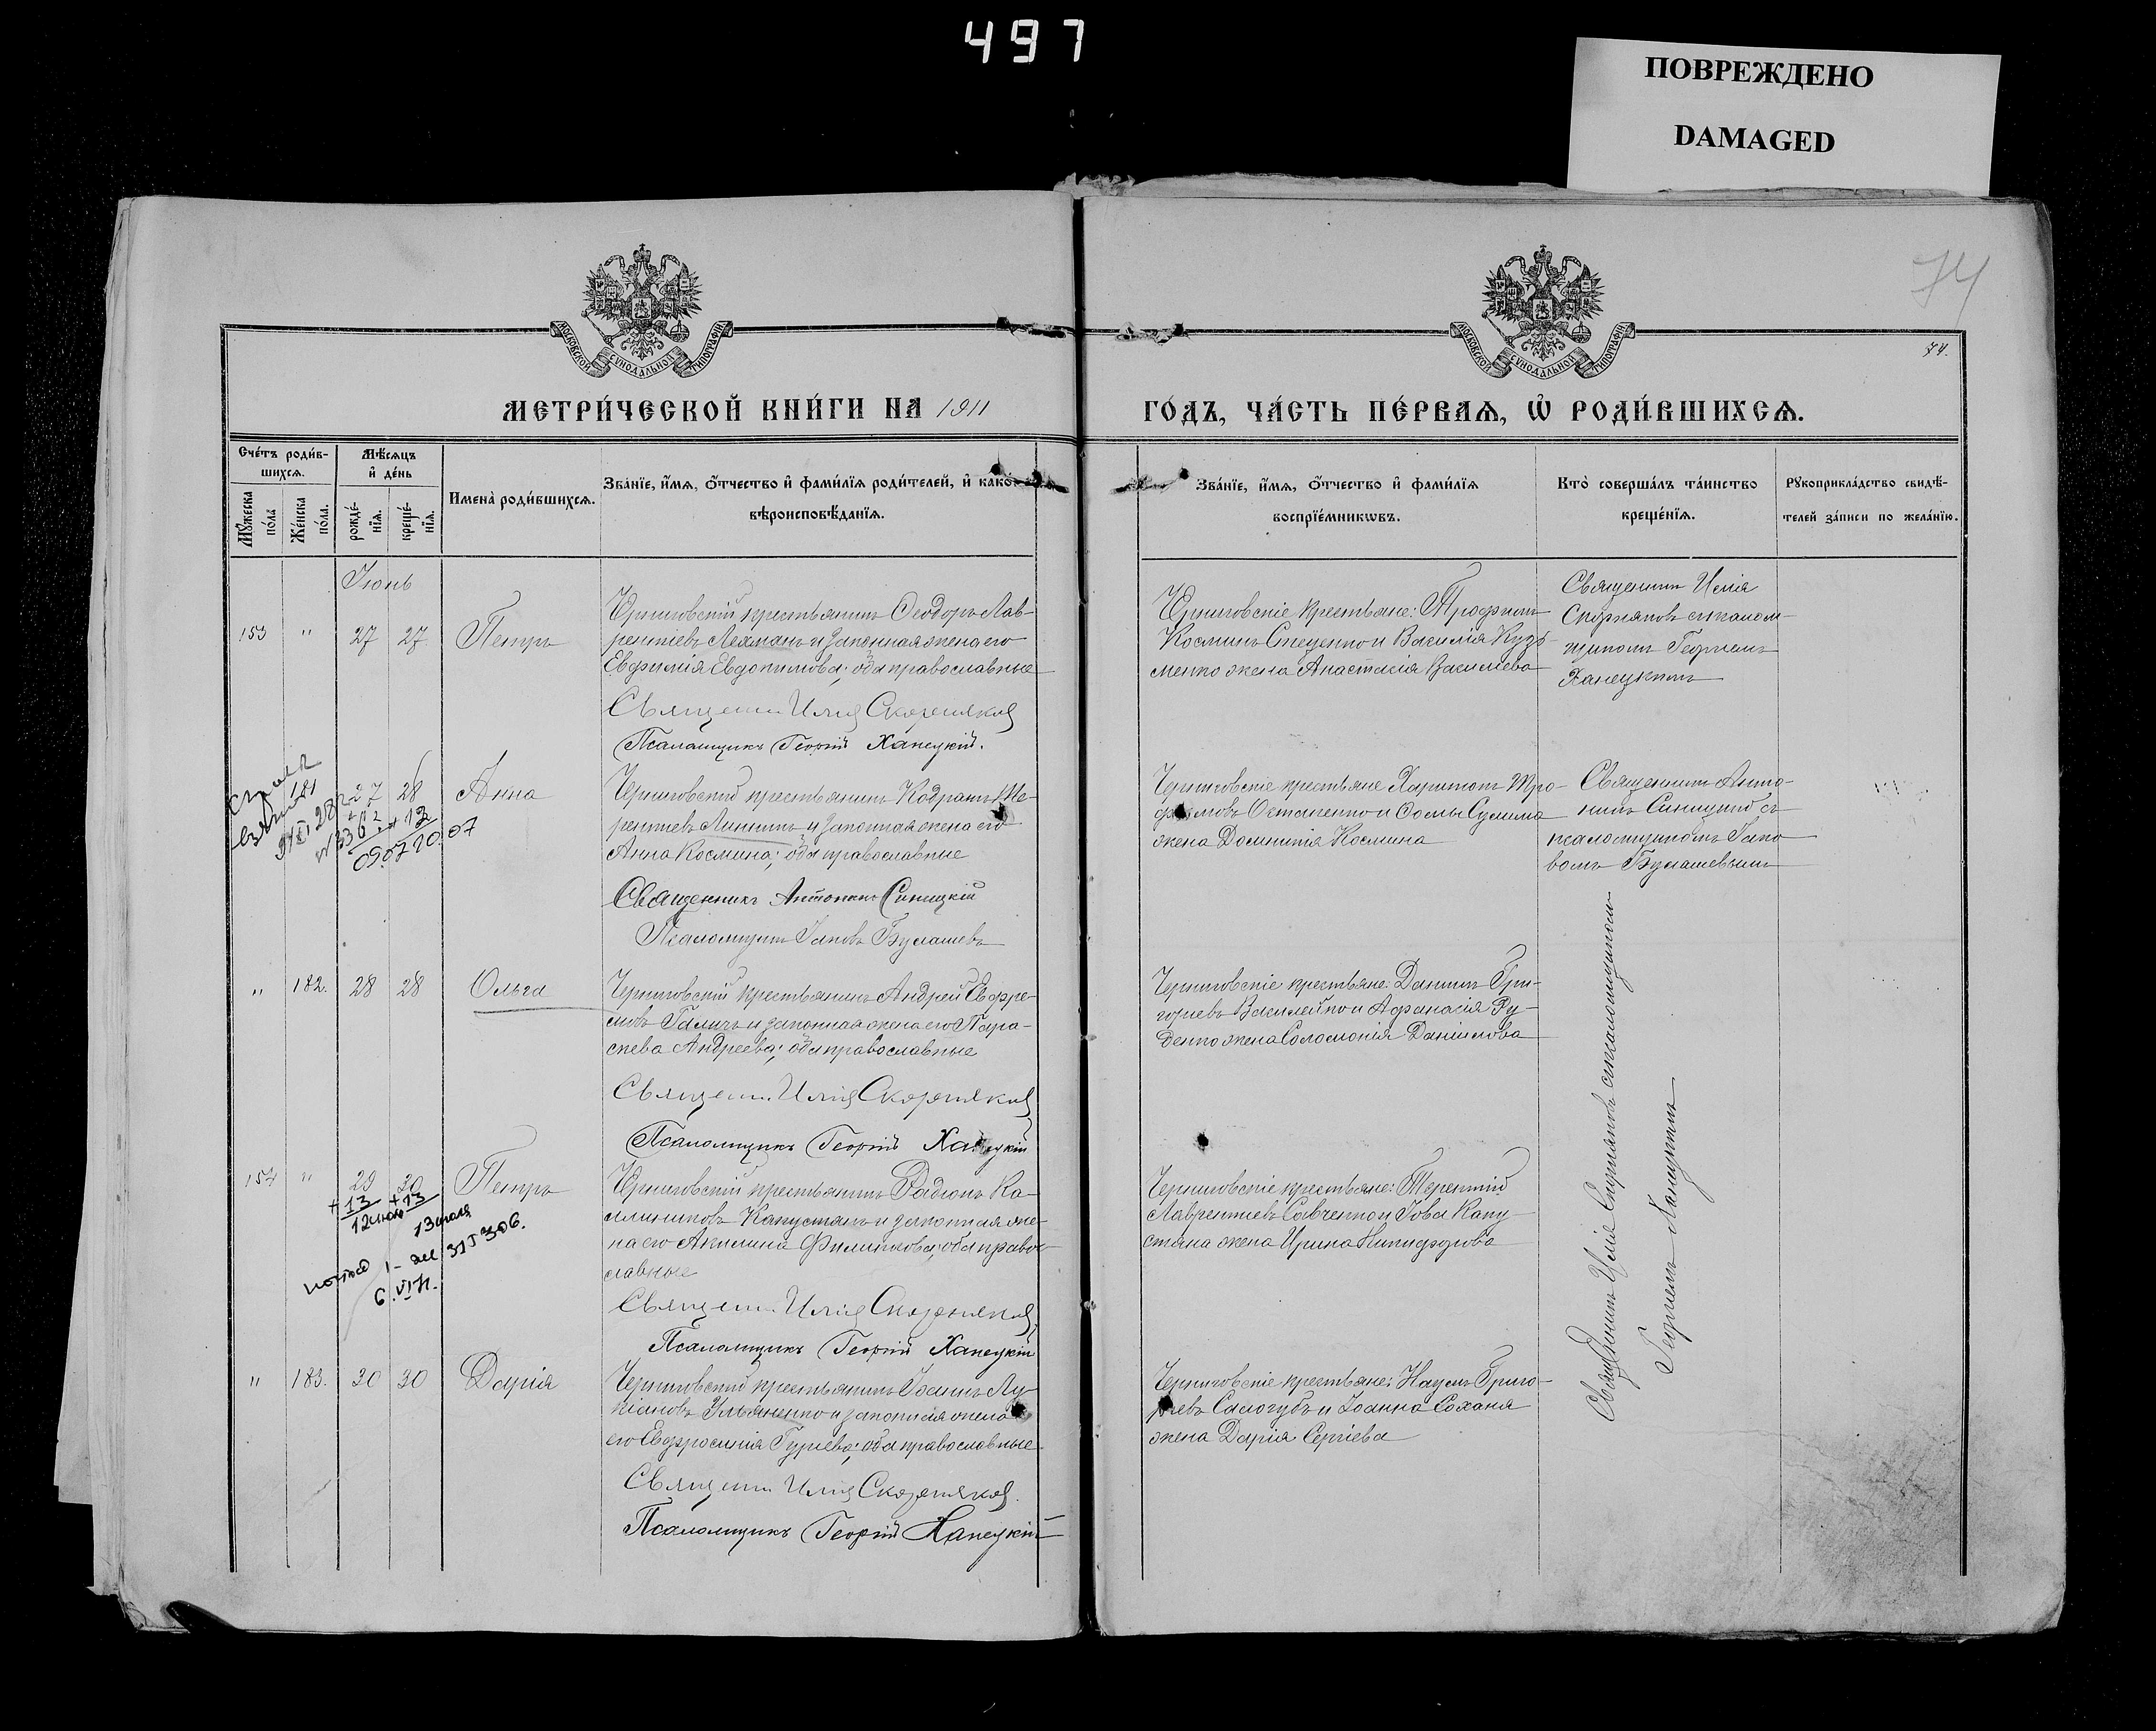 497
ПОВРЕЖДЕНО
DAMAGED
74
МОСКОВСКОЙ СѴНОДАЛЬНОЙ ТИПОГРАФІИ
МОСКОВСКОЙ СѴНОДАЛЬНОЙ ТИПОГРАФІИ
74.
МЕТРИ́ЧЕСКОЙ КНИ́ГИ НА 1911
ГО́ДЪ, ЧА́СТЬ ПЕ́РВАЯ, Ѡ҆ РОДИ́ВШИХСЯ.
Сче́тъ роди́в-
шихся.
Мꙋ́жеска
по́ла
Же́нска
по́ла.
Мѣ́сяцъ
и҆ де́нь
рожде́-
нїя.
креще́-
нїя.
Имена̀ роди́вшихся.
Зва́нїе, и҆́мя, ѻ҆́тчество и҆ фами́лїя роди́телей, и҆ како́-
вѣроисповѣ́данїя.
Зва́нїе, и҆́мя, ѻ҆́тчество и҆ фами́лїя
воспрїе́мникѡвъ.
Кто̀ соверша́лъ та́инство
креще́нїя.
Рꙋкоприкла́дство свидѣ́-
телей за́писи по жела́нїю.
Іюнь
153 " 27 27. Петръ
Черниговскій крестьянинъ Ѳеодоръ Лав-
рентіевъ Лехманъ и законная жена его
Евфимія Евдокимова; оба православные
Священ. Илія Скорняков
Псаломщикъ Георгій Ханецкій.
Черниговскіе крестьяне: Трофимъ
Космина Стеценко и Василія Кузь-
менко жена Анастасія Василіева
Священникъ Илія
Скорняковъ съ псалом-
щикомъ Георгіемъ
Ханецкимъ
181 27 28 Анна
+13
Черниговскій крестьянинъ Кодратъ Те-
рентіевъ Линникъ и законная жена его
Анна Космина; оба православные
Священникъ Антонинъ Синицкій
Псаломщикъ Іаковъ Булашевъ
Черниговскіе крестьяне Харитонъ Тро-
фимовъ Остапенко и Ѳомы Сулима
жена Домникія Космина
Священникъ Анто-
нинъ Синицкій съ
псаломщикомъ Іако
вомъ Булашевымъ
" 182. 28 28 Ольга
Черниговскій крестьянинъ Андрей Евфре-
мовъ Галичъ и законная жена его Пара-
скева Андреева; оба православные
Священ. Илія Скорняков
Псаломщикъ Георгій Ханецкій
Черниговскіе крестьяне: Даніилъ Гри-
горіевъ Василейко и Аѳанасія Ру-
денко жена Соломонія Даніилова
154 " 29 30 Петръ
+13 +13
12 июля 13 июля
6.VI
Черниговскій крестьянинъ Радіонъ Ка-
линиковъ Капустянъ и законная же-
на его Акилина Филиппова; оба право-
славные
Священ. Илія Скорняков
Псаломщикъ Георгій Ханецкій
Черниговскіе крестьяне: Терентій
Лаврентіевъ Савченко и Іова Капу-
стяна жена Ирина Никифорова
Священникъ Илія Скорняковъ съ псаломщикомъ
Георгіемъ Ханецкимъ
" 183. 30 30 Дарія
Черниговскій крестьянинъ Іоаннъ Лу-
кіановъ Ульяненко и законная жена
его Евфросинія Гуріева; оба православные
Священ. Илія Скорняков
Псаломщикъ Георгій Ханецкій
Черниговскіе крестьяне: Наумъ Григо-
ріевъ Самогубъ и Іоанна Сохана
жена Дарія Сергіева